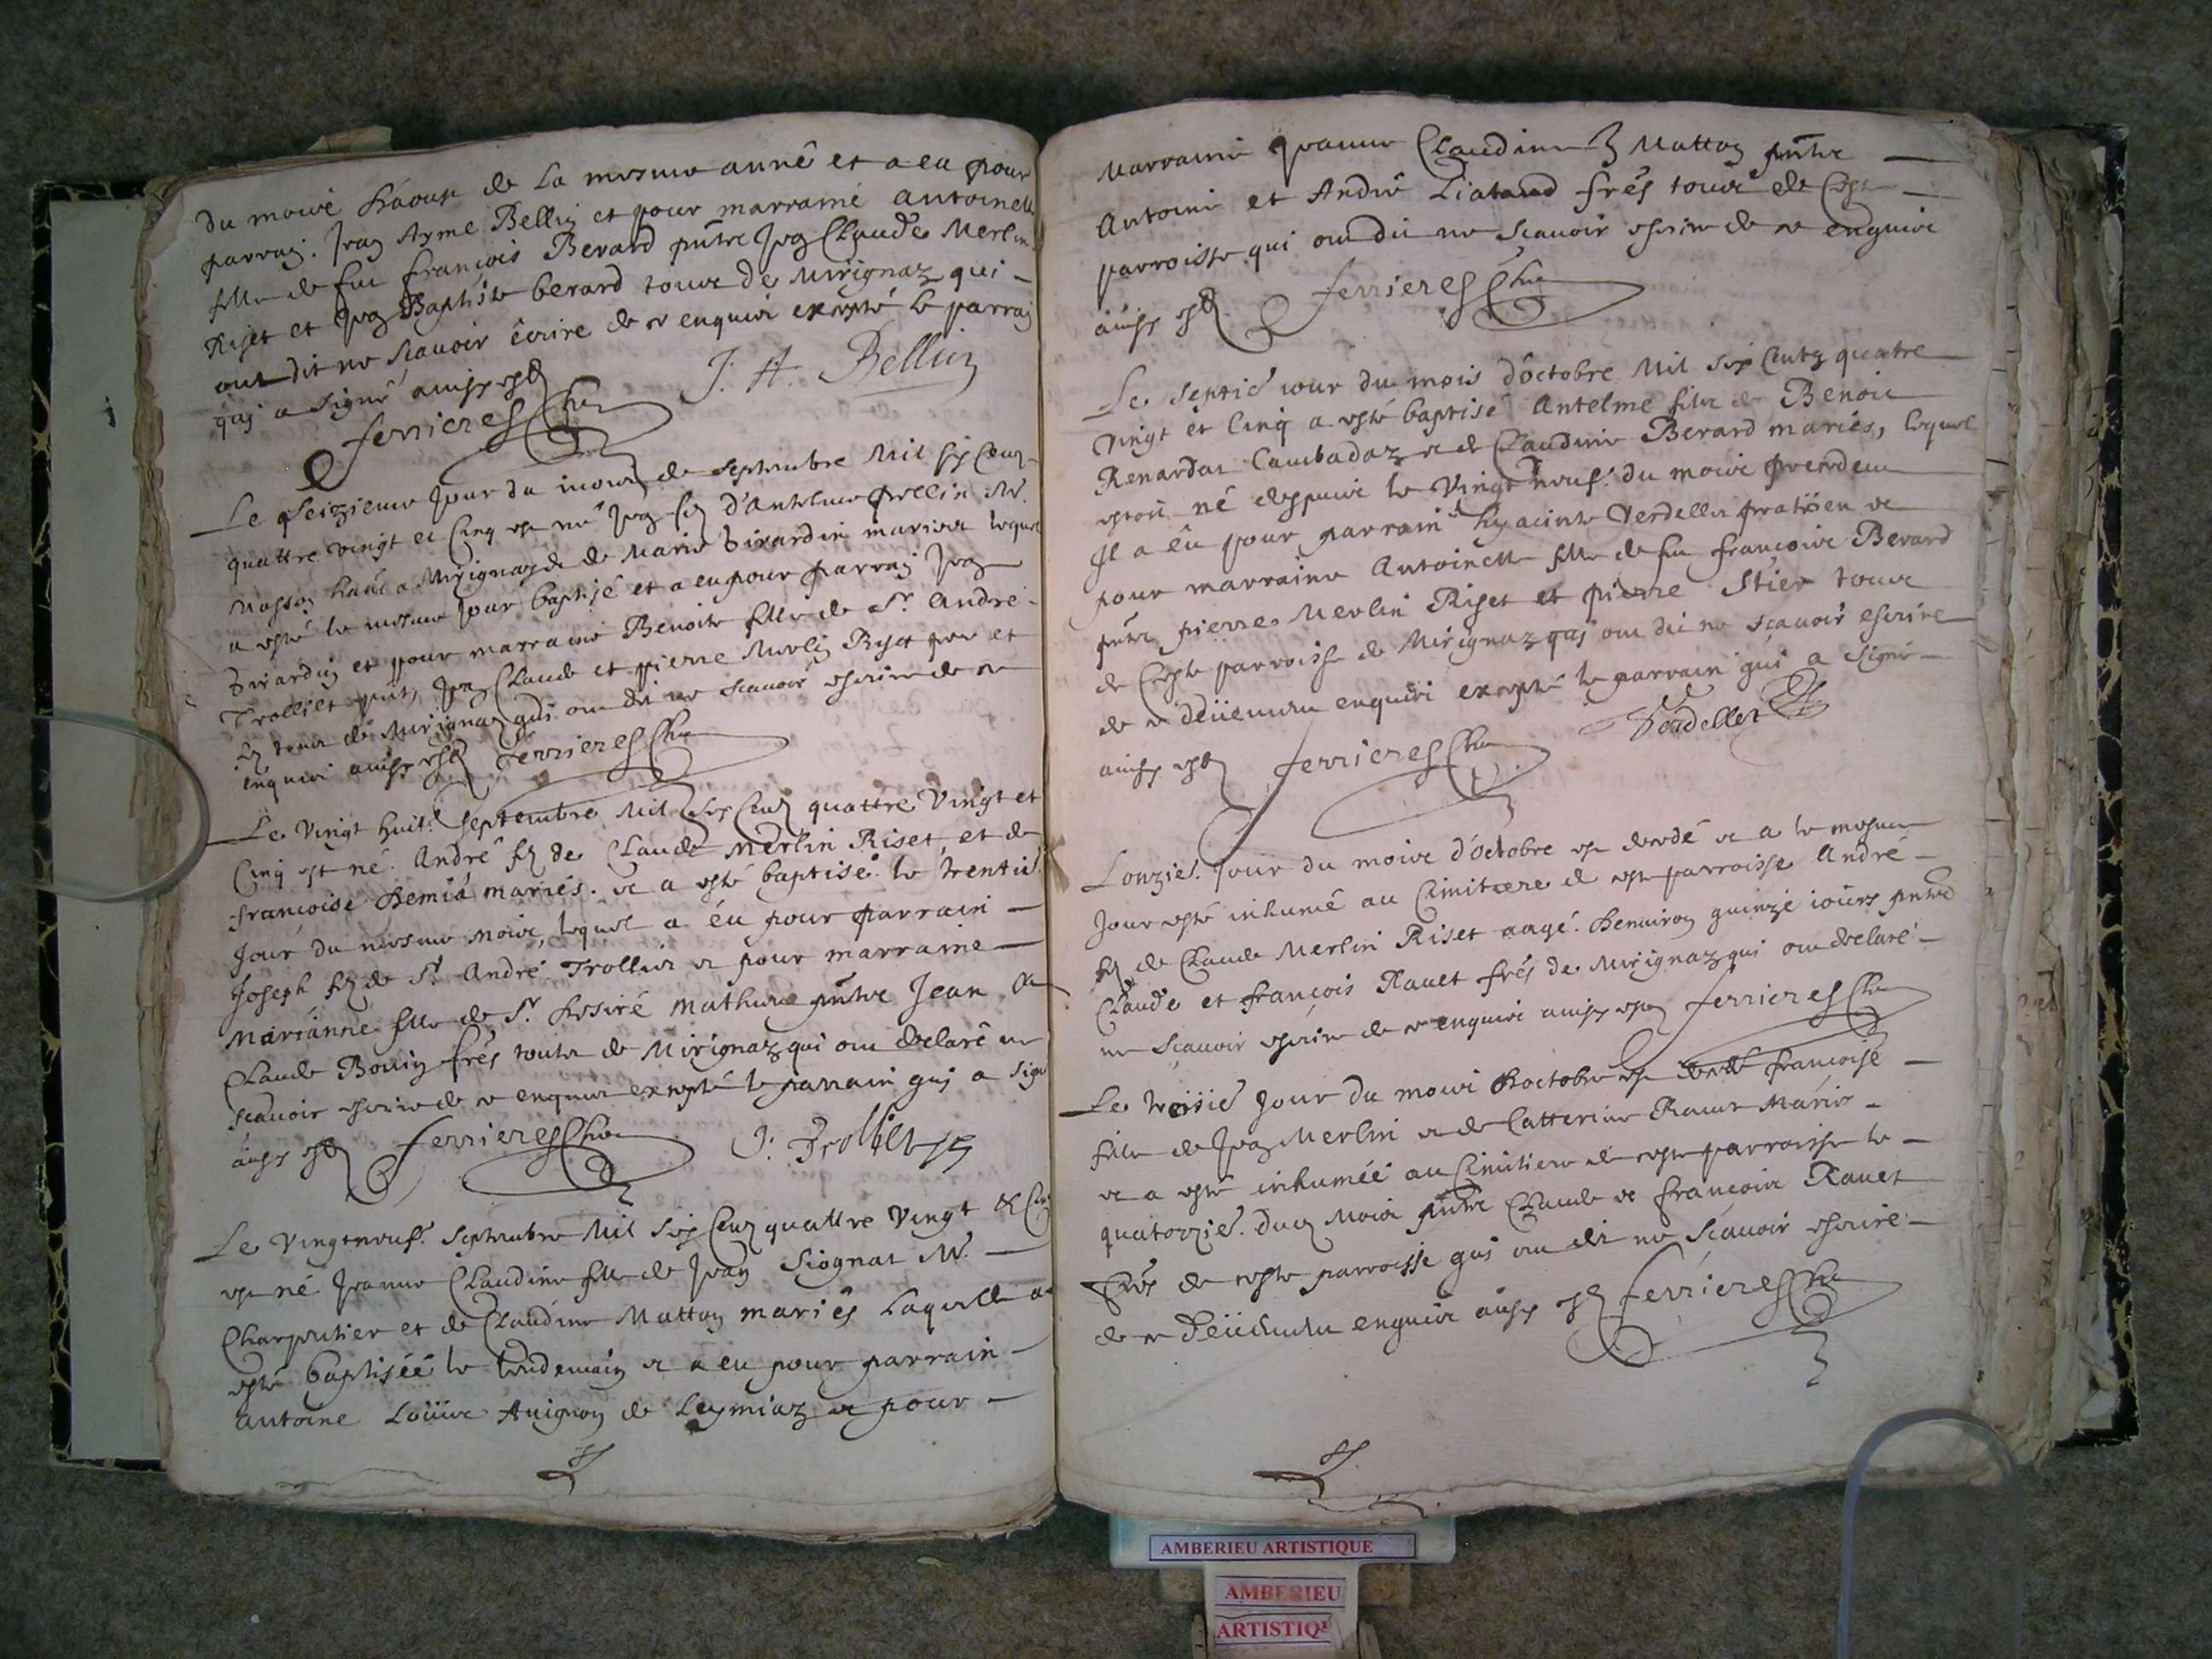 du mois d'aoust de la mesme anné et a eu pour
parraj. Jean Ayme Bellin et pour marraine antoinette
fille de feu françois Berard pntre Jea Claude Merlin
Riset et Jea Baptiste berard tous de Mirignaz qui
ont dit ne sçauoir ècrire de ce enquis excepté le parraj
quj a signé ainsy est
ferrieres Cure J. A. Bellin
Le Seizieme Jour du mois de septembre Mil six Cens
quattre vingt et Cinq est né Jea fils d'Antelme
Masson a Mirignaz & de Marie Girardin mariés lequel
a esté le mesme Jour baptisé et a eu pour parraj Jea
Girardin et pour marraine Benoite fille de Sr André
Trolliet pnt, Jea Claude et pierre Merlin Riset pere et
fils tous de Mirignaz qui ont dit ne scauoir escrire de ce
enquis ainsy est ferrieres Cure
Le Vingt huit.e septembre Mil six Cens quattre Vingt et
Cinq est né André fils de Claude Merlin Riset, et de
francoise mariés. et a esté baptisé le trentie
Jour du mesme mois, lequel a éu pour parrain
Joseph fils de Sr André Trolliet et pour marraine
Marianne fille de Sr Desiré Mathieu pntre Jean &
Claude Bouin frés touts de Mirignaz qui ont declaré ne
scauoir escrire de ce enquis excepté le parrain qui a signé
ainsy est ferrieres Cure J. Trolliet
Le Vingtneuf.e septembre Mil Six Cens quattre Vingt & Cinq
est né Jeanne Claudine fille de Jean Siognat Me.
Charpentier et de Claudine Matton mariés Laquelle a
esté baptiséé le lendemain et a eu pour parrain
antoine Loüis Auignon de Leymiaz et pour
Marraine Jeanne Claudine Matton pntre
Antoine et André Liataud frés touts de Ceste
parroisse qui ont dit ne scauoir escrire de ce enquis
ainsy est ferrieres Cure
Le septié iour du mois d'octobre Mil six Cents quatre
Vingt et Cinq a esté baptisé Antelme fils de Benoit
Renardat Cambadaz et de Claudine Berard mariés, lequel
estoit né despuis le Vingt neuf.e du mois precedent
Il a éu pour parrain hyacinte Verdellet praticien et
pour marraine Antoinette fille de feu francois Berard
pntre pierre Merlin Riset et pierre Stier tous
de Ceste parroisse de Mirignaz quj ont dit ne scauoir escrire
de ce deüement enquis excepté le parrain qui a signé
ainsy est ferrieres Cure Verdellet
L'onzie. Jour du mois d'octobre est decedé et a le mesme
Jour esté inhumé au Cimitiere de ceste parroisse André
fils de Claude Merlin Riset aagé d'enuiron quinze iours pntre
Claude et françois Rauet frés de Mirignaz qui ont declaré
ne scauoir escrire de ce enquis ainsy est ferrieres Cure
Le treisié Jour du mois d'octobre est decedé francoise
fille de Jean Merlin et de Catterine Rauet Mariés
et a esté inhuméé au Cimitiere de ceste parroisse le
quatorzie. dud. mois pntre Claude et francois Rauet
frés de ceste parroisse qui ont dit ne scauoir escrire
de ce deüement enquis ainsy est ferrieres Cure
AMBERIEU ARTISTIQUE
AMBERIEU
ARTISTIQU